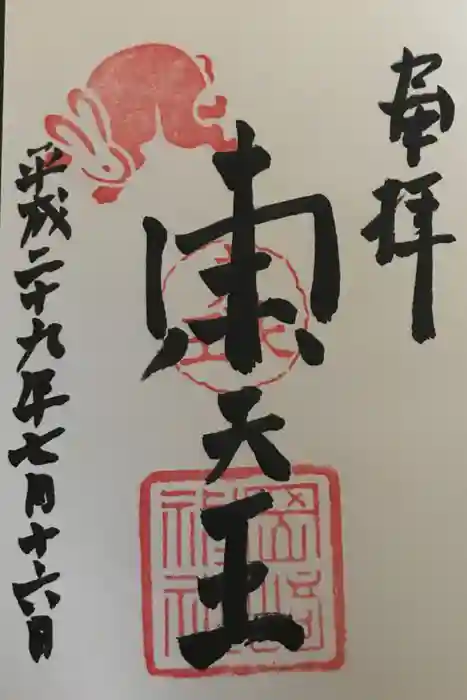 奉拝
東天王
岡崎
神社
平成二十九年七月十六日